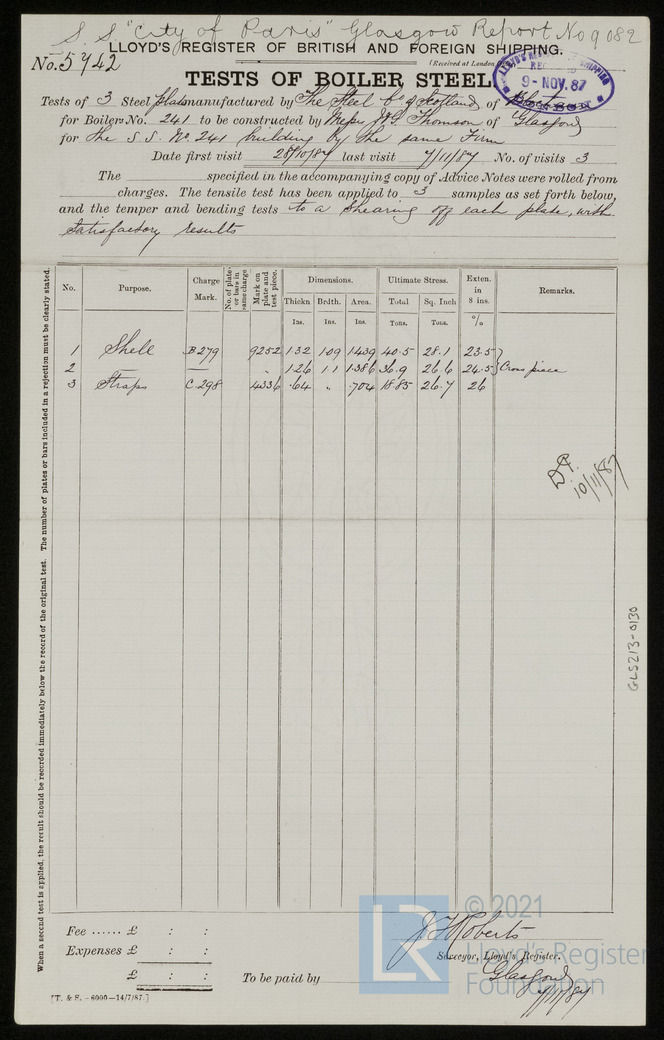 S. S. "City of Paris" Glasgow Report No 9082
LLOYD'S REGISTER OF BRITISH AND FOREIGN SHIPPING.
No. 5742
(Received at London
TESTS OF BOILER STEEL.
9-NOV.87
Tests of 3 Steel plates manufactured by The Steel Co of Scotland of
for Boilers No. 241 to be constructed by Messrs J & G Thomson of Glasgow
for the S. S. No. 241 building by the same Firm
Date first visit 28/10/87 last visit 7/11/87 No. of visits 3
The specified in the accompanying copy of Advice Notes were rolled from
charges. The tensile test has been applied to 3 samples as set forth below,
and the temper and bending tests to a shearing off each plate, with
satisfactory results
When a second test is applied, the result should be recorded immediately below the record of the original test. The number of plates or bars included in a rejection must be clearly stated.
No. Purpose. Charge Mark. No. of plates or bars in same charge Mark on plate and test piece. Dimensions. Ultimate Stress. Exten. in 8 ins. Remarks.
Thickn Brdth. Area. Total Sq. Inch
Ins. Ins. Ins. Tons. Tons. %
1 Shell B 279 9252 1.32 1.09 1.439 40.5 28.1 23.5
2 — " 1.26 1.1 1.386 36.9 26.6 24.5 Cross piece
3 Straps C 298 4336 .64 " .704 18.85 26.7 26
10/11/87
GLS213-0130
Fee ...... £ : :
Expenses £ : :
£ : :
To be paid by
J T Roberts
Surveyor, Lloyd's Register.
Glasgow
7/11/87
[T. & S. – 6000 – 14/7/87.]
LR
© 2021
Lloyd's Register
Foundation